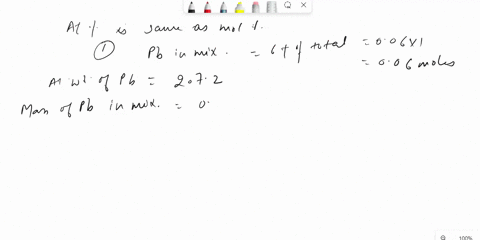 At % is same as mol %.
① Pb in mix. = 6% of total = 0.06x1
= 0.06 moles
At. wt. of Pb = 207.2
Mass of Pb in mix. = 0.
100%